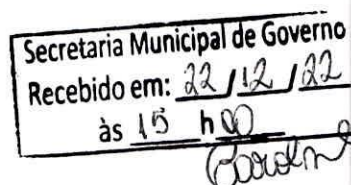 Secretaria Municipal de Governo
Recebido em: 22 / 12 / 22
às 15 h 00